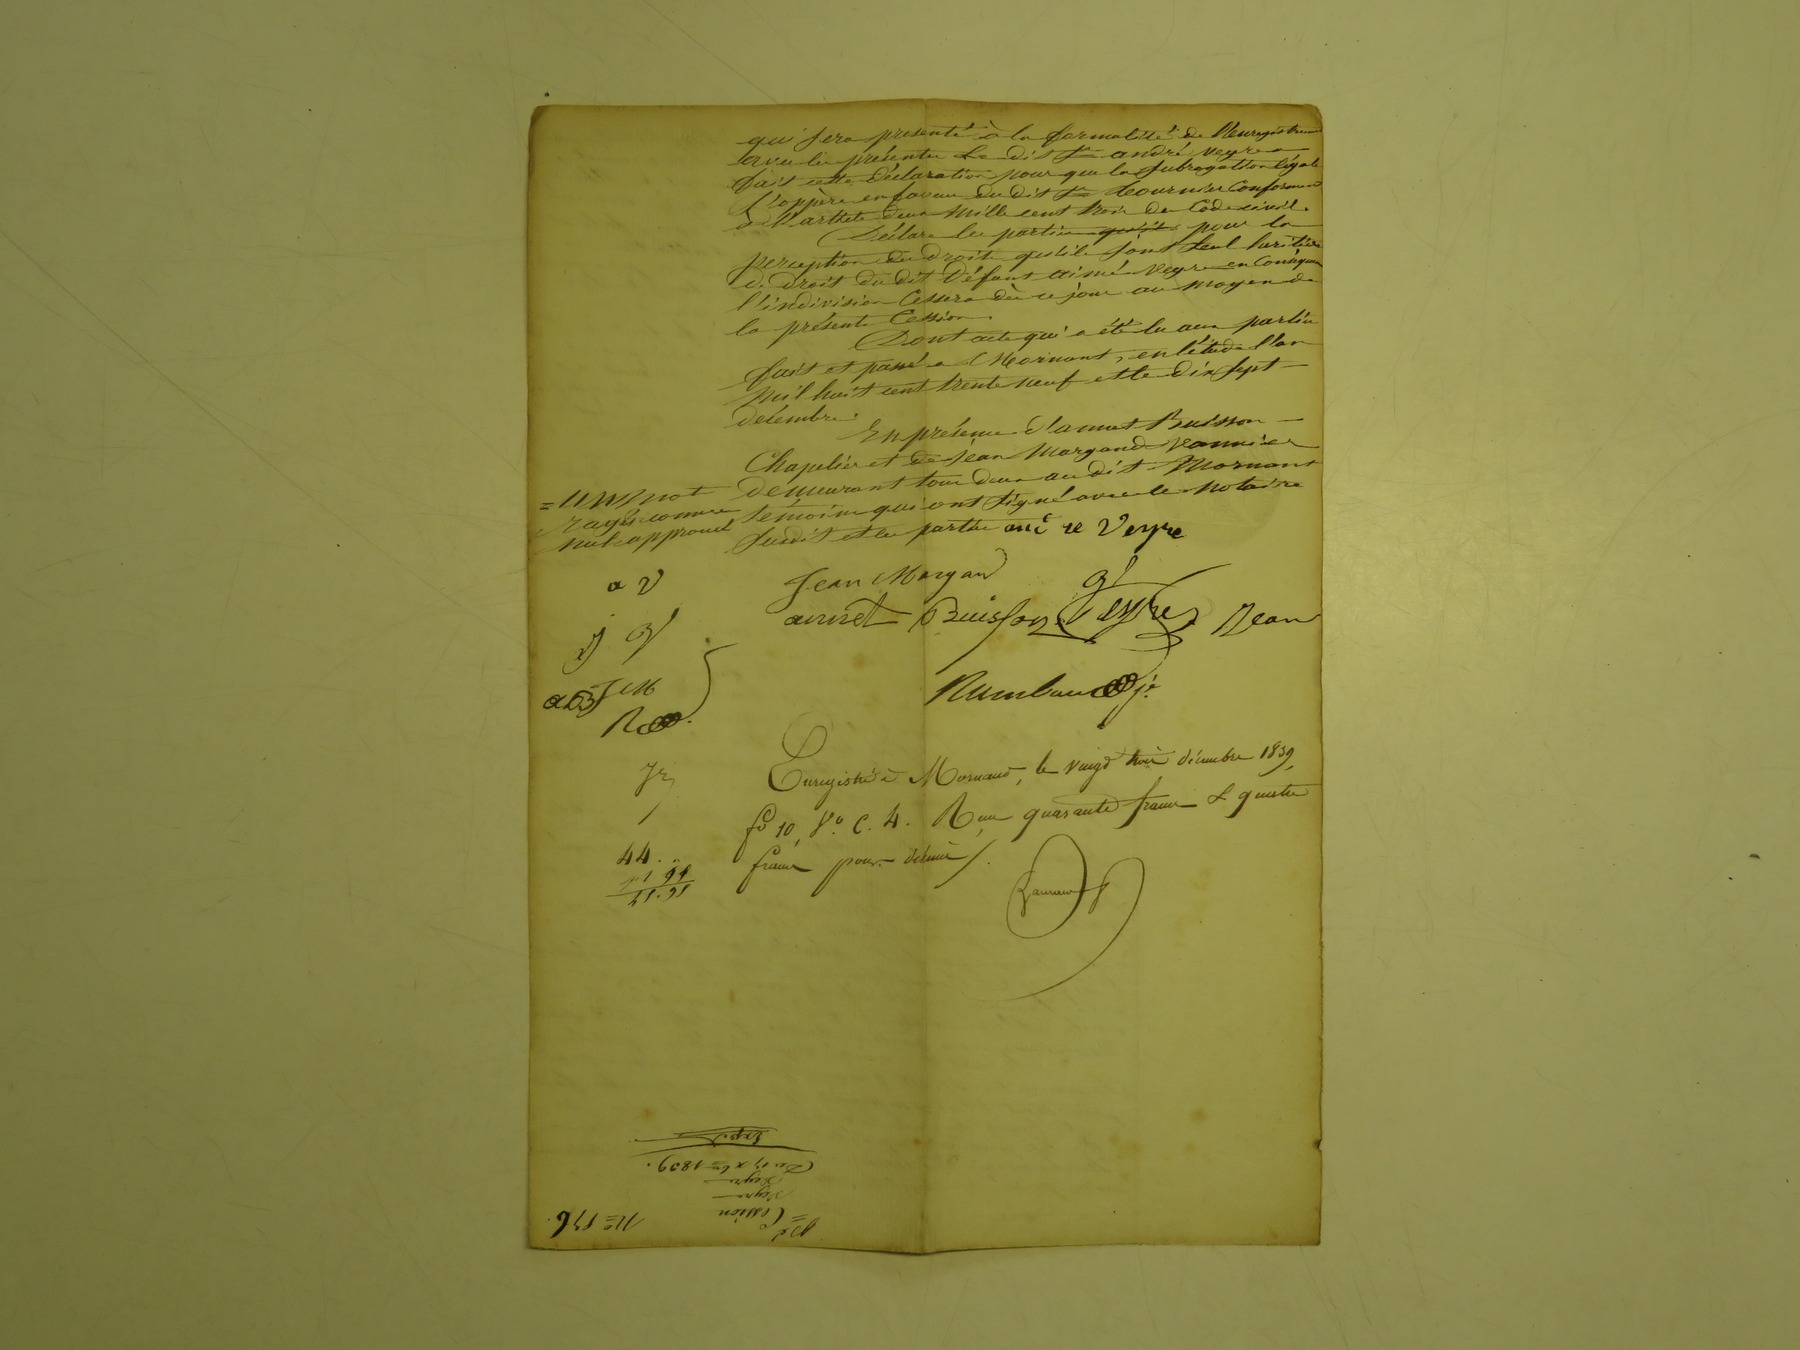 qui sera présenté à la formalité de l'Enregistrement
avec les présentes Le dit Sr andré veyre a
fait cette déclaration pour que la subrogation légale
s'oppère en faveur du dit Sr Conformement
à l'article deux mille cent trois du Code civil.
Déclare les parties pour la
perception des droits qu'ils sont seul héritiers
de droit du dit défunt aimé veyre en Conséquence
l'indivision Cessera dès ce jour au moyen de
la présente Cession.
Dont acte qui a été lu aux parties
fait et passé a Mornant, en l'étude l'an
mil huit cent trente neuf et le dix sept
décembre.
En présence d'annet Buisson
Chapelier et de Jean Morgand vannier
demeurant tous deux au dit Mornant
témoins qui ont signé avec le Notaire
susdit et les parties
= mot
rayés comme
nul approuvé
andré Veyre
a V
Jean Morgand
annet Buisson Veyre Jean
j V
a B J M
R
Rambaud je
Enregistré à Mornant, le vingt trois décembre 1839,
fo 10, Vo. C. 4. Reçu quarante francs & quatre
francs pour décime
44.
N° 136.
Cession
Veyre
Veyre
Du 17 xbre 1839.
Expé